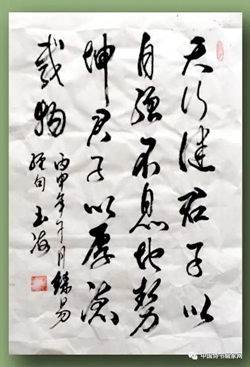 天行健君子以
自强不息地势
坤君子以厚德
载物
丙申年
易
经句 玉海
中国诗书画家网